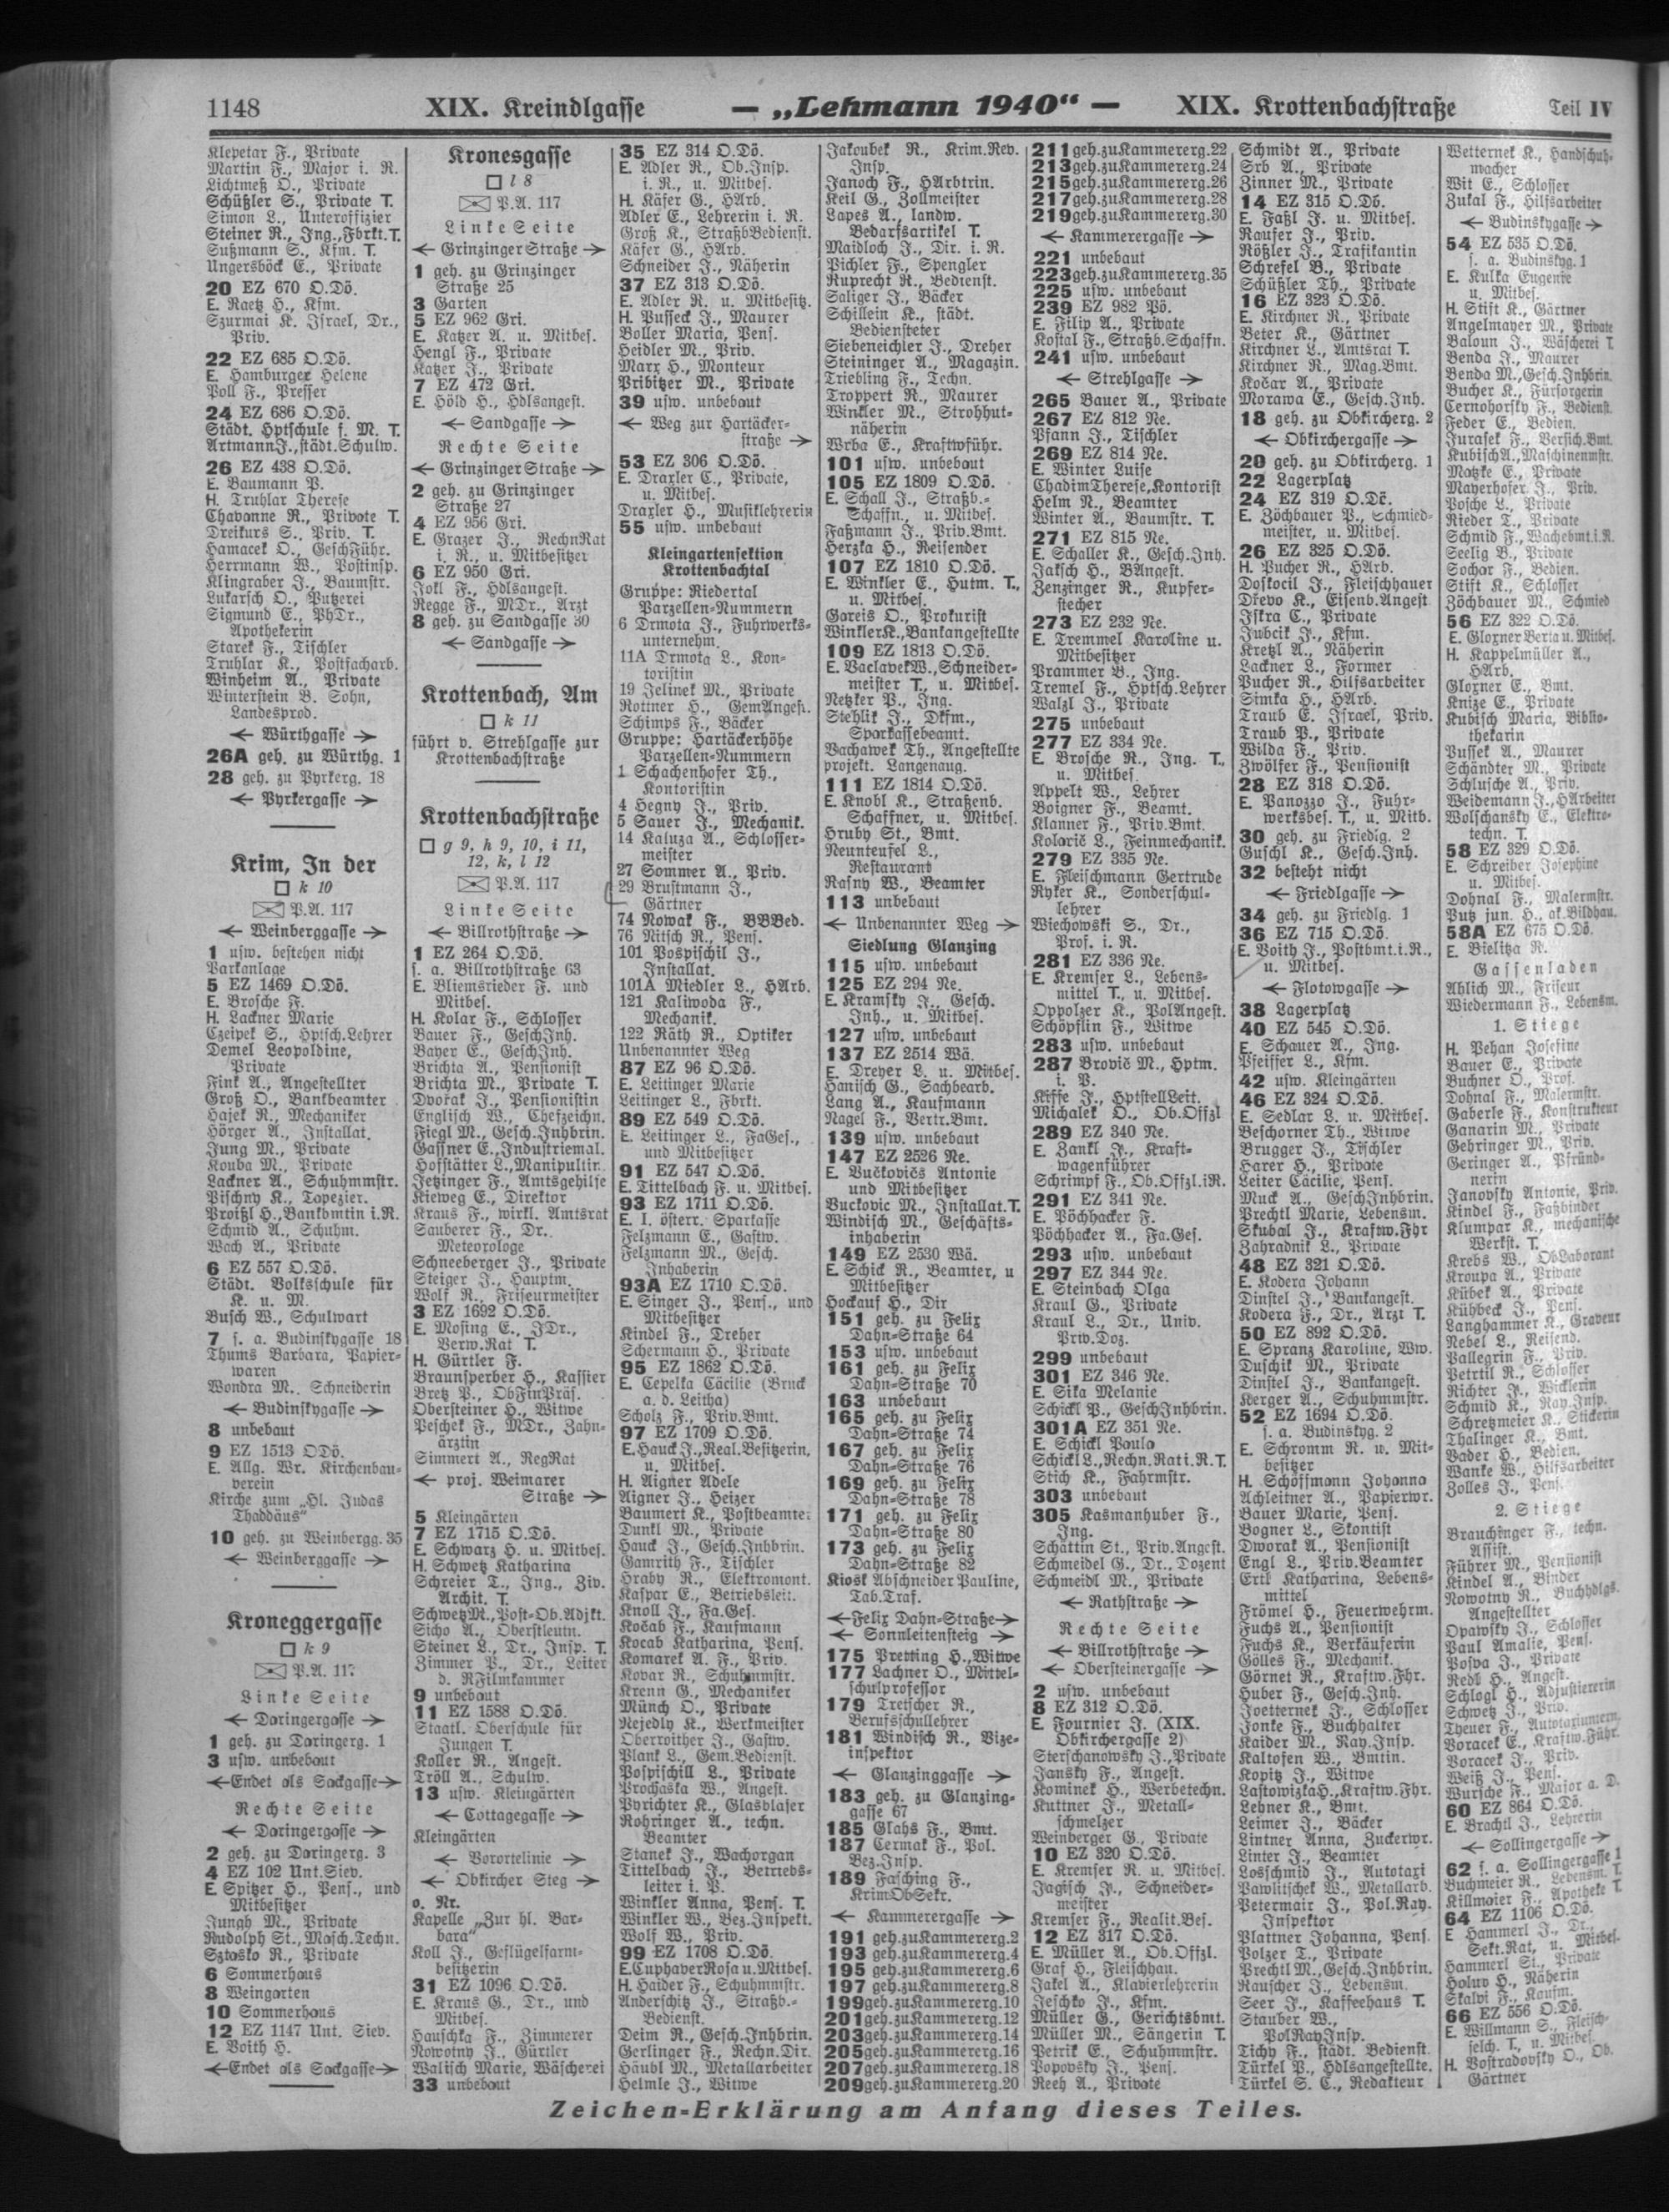 1148
XIX. Kreindlgasse
— „Lehmann 1940“ —
XIX. Krottenbachstraße
Teil IV
Klepetar F., Private
Martin F., Major i. R.
Lichtmeß O., Private
Schüßler S., Private T.
Simon L., Unteroffizier
Steiner R., Ing., Fbrkt. T.
Sußmann S., Kfm. T.
Ungersböck E., Private
20 EZ 670 O.Dö.
E. Raetz H., Kfm.
Szurmai K. Israel, Dr.,
Priv.
22 EZ 685 O.Dö.
E. Hamburger Helene
Poll F., Presser
24 EZ 686 O.Dö.
Städt. Hptschule f. M. T.
Artmann J., städt. Schulw.
26 EZ 438 O.Dö.
E. Baumann P.
H. Truhlar Therese
Chavanne R., Private T.
Dreikurs S., Priv. T.
Hamacek O., GeschFühr.
Herrmann W., Postinsp.
Klingraber J., Baumstr.
Lukarsch O., Putzerei
Sigmund E., PhDr.,
Apothekerin
Starek F., Tischler
Truhlar K., Postfacharb.
Winheim A., Private
Winterstein B. Sohn,
Landesprod.
← Würthgasse →
26A geh. zu Würthg. 1
28 geh. zu Pyrkerg. 18
← Pyrkergasse →
Krim, In der
□ k 10
P.A. 117
← Weinberggasse →
1 usw. bestehen nicht
Parkanlage
5 EZ 1469 O.Dö.
E. Brosche F.
H. Lackner Marie
Czeipek S., Hptsch.Lehrer
Demel Leopoldine,
Private
Fink A., Angestellter
Groß O., Bankbeamter
Hajek R., Mechaniker
Hörger A., Installat.
Jung M., Private
Kouba M., Private
Lackner A., Schuhmmstr.
Pischny K., Tapezier.
Proißl H., Bankbmtin i.R.
Schmid A., Schuhm.
Wach A., Private
6 EZ 557 O.Dö.
Städt. Volksschule für
K. u. M.
Busch W., Schulwart
7 s. a. Budinskygasse 18
Thums Barbara, Papier-
waren
Wondra M., Schneiderin
← Budinskygasse →
8 unbebaut
9 EZ 1513 ODö.
E. Allg. Wr. Kirchenbau-
verein
Kirche zum „Hl. Judas
Thaddäus“
10 geh. zu Weinbergg. 35
← Weinberggasse →
Kroneggergasse
□ k 9
P.A. 117
Linke Seite
← Daringergasse →
1 geh. zu Daringerg. 1
3 usw. unbebaut
← Endet als Sackgasse →
Rechte Seite
← Daringergasse →
2 geh. zu Daringerg. 3
4 EZ 102 Unt.Siev.
E. Spitzer H., Pens., und
Mitbesitzer
Jungh M., Private
Rudolph St., Masch.Techn.
Sztasko R., Private
6 Sommerhaus
8 Weingarten
10 Sommerhaus
12 EZ 1147 Unt. Siev.
E. Voith H.
← Endet als Sackgasse →
Kronesgasse
□ l 8
P.A. 117
Linke Seite
← Grinzinger Straße →
1 geh. zu Grinzinger
Straße 25
3 Garten
5 EZ 962 Gri.
E. Katzer A. u. Mitbes.
Hengl F., Private
Katzer J., Private
7 EZ 472 Gri.
E. Höld H., Hdlsangest.
← Sandgasse →
Rechte Seite
← Grinzinger Straße →
2 geh. zu Grinzinger
Straße 27
4 EZ 956 Gri.
E. Grazer J., RechnRat
i. R., u. Mitbesitzer
6 EZ 950 Gri.
Jokl F., Hdlsangest.
Regge F., MDr., Arzt
8 geh. zu Sandgasse 30
← Sandgasse →
Krottenbach, Am
□ k 11
führt v. Strehlgasse zur
Krottenbachstraße
Krottenbachstraße
□ g 9, h 9, 10, i 11,
12, k, l 12
P.A. 117
Linke Seite
← Billrothstraße →
1 EZ 264 O.Dö.
s. a. Billrothstraße 63
E. Bliemsrieder F. und
Mitbes.
H. Kolar F., Schlosser
Bauer F., GeschInh.
Bayer E., GeschInh.
Brichta A., Pensionist
Brichta M., Private T.
Dvořak J., Pensionistin
Englisch W., Chefzeichn.
Fiegl M., Gesch.Inhbrin.
Gassner E., Industriemal.
Hofstätter L., Manipultir.
Jetzinger F., Amtsgehilfe
Kieweg E., Direktor
Kraus F., wirkl. Amtsrat
Sauberer F., Dr.
Meteorologe
Schneeberger J., Private
Steiger J., Hauptm.
Wolf R., Friseurmeister
3 EZ 1692 O.Dö.
E. Mosing E., JDr.,
Verw.Rat T.
H. Gürtler F.
Braunsperber H., Kassier
Bretz P., ObFinPräs.
Obersteiner H., Witwe
Peschek F., MDr., Zahn-
ärztin
Simmert A., RegRat
← proj. Weimarer
Straße →
5 Kleingärten
7 EZ 1715 O.Dö.
E. Schwarz H. u. Mitbes.
H. Schwetz Katharina
Schreier T., Ing., Ziv.
Archit. T.
Schwetz M., Post-Ob.Adjkt.
Sicho A., Oberstleutn.
Steiner L., Dr., Insp. T.
Zimmer P., Dr., Leiter
d. RFilmkammer
9 unbebaut
11 EZ 1588 O.Dö.
Staatl. Oberschule für
Jungen T.
Koller R., Angest.
Tröll A., Schulw.
13 usw. Kleingärten
← Cottagegasse →
Kleingärten
← Vorortelinie →
← Obkircher Steg →
o. Nr.
Kapelle „Zur hl. Bar-
bara“
Koll J., Geflügelfarm-
besitzerin
31 EZ 1096 O.Dö.
E. Kraus G., Dr., und
Mitbes.
Hauschka F., Zimmerer
Nowotny J., Gürtler
Walisch Marie, Wäscherei
33 unbebaut
35 EZ 314 O.Dö.
E. Adler R., Ob.Insp.
i. R., u. Mitbes.
H. Käfer G., HArb.
Adler E., Lehrerin i. R.
Groß K., StraßbBedienst.
Käfer G., HArb.
Schneider J., Näherin
37 EZ 313 O.Dö.
E. Adler R. u. Mitbesitz.
H. Pusseck J., Maurer
Boller Maria, Pens.
Heidler M., Priv.
Marx H., Monteur
Pribitzer M., Private
39 usw. unbebaut
← Weg zur Hartäcker-
straße →
53 EZ 306 O.Dö.
E. Draxler C., Private,
u. Mitbes.
Draxler H., Musiklehrerin
55 usw. unbebaut
Kleingartensektion
Krottenbachtal
Gruppe: Riedertal
Parzellen-Nummern
6 Drmota J., Fuhrwerks-
unternehm.
11A Drmota L., Kon-
toristin
19 Jelinek M., Private
Rottner H., GemAngest.
Schimps F., Bäcker
Gruppe: Hartäckerhöhe
Parzellen-Nummern
1 Schachenhofer Th.,
Kontoristin
4 Hegny J., Priv.
5 Sauer J., Mechanik.
14 Kaluza A., Schlosser-
meister
27 Sommer A., Priv.
29 Brustmann J.,
Gärtner
74 Nowak F., BBBed.
76 Nitsch R., Pens.
101 Pospischil J.,
Installat.
101A Miedler L., HArb.
121 Kaliwoda F.,
Mechanik.
122 Räth R., Optiker
Unbenannter Weg
87 EZ 96 O.Dö.
E. Leitinger Marie
Leitinger L., Fbrkt.
89 EZ 549 O.Dö.
E. Leitinger L., FaGes.,
und Mitbesitzer
91 EZ 547 O.Dö.
E. Tittelbach F. u. Mitbes.
93 EZ 1711 O.Dö.
E. I. österr. Sparkasse
Felzmann E., Gastw.
Felzmann M., Gesch.
Inhaberin
93A EZ 1710 O.Dö.
E. Singer J., Pens., und
Mitbesitzer
Kindel F., Dreher
Schermann H., Private
95 EZ 1862 O.Dö.
E. Cepelka Cäcilie (Bruck
a. d. Leitha)
Scholz F., Priv.Bmt.
97 EZ 1709 O.Dö.
E. Hauck J., Real.Besitzerin,
u. Mitbes.
H. Aigner Adele
Aigner J., Heizer
Baumert K., Postbeamter
Dunkl M., Private
Hauck J., Gesch.Inhbrin.
Gamrith F., Tischler
Hraby R., Elektromont.
Kaspar E., Betriebsleit.
Knoll J., Fa.Ges.
Kočab F., Kaufmann
Kocab Katharina, Pens.
Komarek A. F., Priv.
Kovar R., Schuhmmstr.
Krenn G., Mechaniker
Münch O., Private
Nejedly K., Werkmeister
Oberroither J., Gastw.
Plank L., Gem.Bedienst.
Pospischill L., Private
Prochaska W., Angest.
Pyrichter K., Glasbläser
Rohringer A., techn.
Beamter
Stanek J., Wachorgan
Tittelbach J., Betriebs-
leiter i. P.
Winkler Anna, Pens. T.
Winkler W., Bez.Inspekt.
Wolf W., Priv.
99 EZ 1708 O.Dö.
E. Cuphaver Rosa u. Mitbes.
H. Haider F., Schuhmmstr.
Anderschitz J., Straßb.-
Bedienst.
Deim R., Gesch.Inhbrin.
Gerlinger F., Rechn.Dir.
Häubl M., Metallarbeiter
Helmle J., Witwe
Jakoubek R., Krim.Rev.
Insp.
Janoch F., HArbtrin.
Keil G., Zollmeister
Lapes A., landw.
Bedarfsartikel T.
Maidloch J., Dir. i. R.
Pichler F., Spengler
Ruprecht R., Bedienst.
Saliger J., Bäcker
Schillein K., städt.
Bediensteter
Siebeneichler J., Dreher
Steininger A., Magazin.
Triebling F., Techn.
Troppert R., Maurer
Winkler M., Strohhut-
näherin
Wrba E., Kraftwführ.
101 usw. unbebaut
105 EZ 1809 O.Dö.
E. Schall J., Straßb.-
Schaffn., u. Mitbes.
Faßmann J., Priv.Bmt.
Herzka H., Reisender
107 EZ 1810 O.Dö.
E. Winkler E., Hutm. T.,
u. Mitbes.
Gareis O., Prokurist
Winkler K., Bankangestellte
109 EZ 1813 O.Dö.
E. Vaclavek W., Schneider-
meister T., u. Mitbes.
Netzker P., Ing.
Stehlik J., Dkfm.,
Sparkassebeamt.
Vachawek Th., Angestellte
projekt. Langenaug.
111 EZ 1814 O.Dö.
E. Knobl K., Straßenb.
Schaffner, u. Mitbes.
Hruby St., Bmt.
Neunteufel L.,
Restaurant
Rasny W., Beamter
113 unbebaut
← Unbenannter Weg →
Siedlung Glanzing
115 usw. unbebaut
125 EZ 294 Ne.
E. Kramsky J., Gesch.
Inh., u. Mitbes.
127 usw. unbebaut
137 EZ 2514 Wä.
E. Dreyer L. u. Mitbes.
Hanisch G., Sachbearb.
Lang A., Kaufmann
Nagel F., Vertr.Bmt.
139 usw. unbebaut
147 EZ 2526 Ne.
E. Vučkovičs Antonie
und Mitbesitzer
Vuckovic M., Installat. T.
Windisch M., Geschäfts-
inhaberin
149 EZ 2530 Wä.
E. Schick R., Beamter, u
Mitbesitzer
Hockauf H., Dir
151 geh. zu Felix
Dahn-Straße 64
153 usw. unbebaut
161 geh. zu Felix
Dahn-Straße 70
163 unbebaut
165 geh. zu Felix
Dahn-Straße 74
167 geh. zu Felix
Dahn-Straße 76
169 geh. zu Felix
Dahn-Straße 78
171 geh. zu Felix
Dahn-Straße 80
173 geh. zu Felix
Dahn-Straße 82
Kiosk Abschneider Pauline,
Tab.Traf.
← Felix Dahn-Straße →
← Sonnleitensteig →
175 Pretting H., Witwe
177 Lachner O., Mittel-
schulprofessor
179 Tretscher R.,
Berufsschullehrer
181 Windisch R., Vize-
inspektor
← Glanzinggasse →
183 geh. zu Glanzing-
gasse 67
185 Glahs F., Bmt.
187 Cermak F., Pol.
Bez.Insp.
189 Fasching F.,
KrimObSekr.
← Kammerergasse →
191 geh. zu Kammererg. 2
193 geh. zu Kammererg. 4
195 geh. zu Kammererg. 6
197 geh. zu Kammererg. 8
199 geh. zu Kammererg. 10
201 geh. zu Kammererg. 12
203 geh. zu Kammererg. 14
205 geh. zu Kammererg. 16
207 geh. zu Kammererg. 18
209 geh. zu Kammererg. 20
211 geh. zu Kammererg. 22
213 geh. zu Kammererg. 24
215 geh. zu Kammererg. 26
217 geh. zu Kammererg. 28
219 geh. zu Kammererg. 30
← Kammerergasse →
221 unbebaut
223 geh. zu Kammererg. 35
225 usw. unbebaut
239 EZ 982 Pö.
E. Filip A., Private
Kostal F., Straßb.Schaffn.
241 usw. unbebaut
← Strehlgasse →
265 Bauer A., Private
267 EZ 812 Ne.
Pfann J., Tischler
269 EZ 814 Ne.
E. Winter Luise
Chadim Therese, Kontorist
Helm N., Beamter
Winter A., Baumstr. T.
271 EZ 815 Ne.
E. Schaller K., Gesch.Inh.
Jaksch H., BAngest.
Zenzinger R., Kupfer-
stecher
273 EZ 232 Ne.
E. Tremmel Karoline u.
Mitbesitzer
Prammer B., Ing.
Tremel F., Hptsch.Lehrer
Walzl J., Private
275 unbebaut
277 EZ 334 Ne.
E. Brosche R., Ing. T.,
u. Mitbes.
Appelt W., Lehrer
Boigner F., Beamt.
Klanner F., Priv.Bmt.
Kolarič L., Feinmechanik.
279 EZ 335 Ne.
E. Fleischmann Gertrude
Ryker K., Sonderschul-
lehrer
Wiechowski S., Dr.,
Prof. i. R.
281 EZ 336 Ne.
E. Kremser L., Lebens-
mittel T., u. Mitbes.
Oppolzer K., PolAngest.
Schöpflin F., Witwe
283 usw. unbebaut
287 Brovič M., Hptm.
i. P.
Kiffe J., HptstellLeit.
Michalek O., Ob.Offzl
289 EZ 340 Ne.
E. Zankl J., Kraft-
wagenführer
Schrimpf F., Ob.Offzl.iR.
291 EZ 341 Ne.
E. Pöchhacker F.
Pöchhacker A., Fa.Ges.
293 usw. unbebaut
297 EZ 344 Ne.
E. Steinbach Olga
Kraul G., Private
Kraul L., Dr., Univ.
Priv.Doz.
299 unbebaut
301 EZ 346 Ne.
E. Sika Melanie
Schickl P., GeschInhbrin.
301A EZ 351 Ne.
E. Schickl Paula
Schickl L., Rechn.Rat i.R. T.
Stich K., Fahrmstr.
303 unbebaut
305 Kasmanhuber F.,
Ing.
Schattin St., Priv.Angest.
Schmeidel G., Dr., Dozent
Schmeidl M., Private
← Rathstraße →
Rechte Seite
← Billrothstraße →
← Obersteinergasse →
2 usw. unbebaut
8 EZ 312 O.Dö.
E. Fournier J. (XIX.
Obkirchergasse 2)
Sterschanowsky J., Private
Jansky F., Angest.
Kominek H., Werbetechn.
Kuttner J., Metall-
schmelzer
Weinberger G., Private
10 EZ 320 O.Dö.
E. Kremser R. u. Mitbes.
Jagisch J., Schneider-
meister
Kremser F., Realit.Bes.
12 EZ 317 O.Dö.
E. Müller A., Ob.Offzl.
Graf H., Fleischhau.
Jakel A., Klavierlehrerin
Jeschko J., Kfm.
Müller G., Gerichtsbmt.
Müller M., Sängerin T.
Petrik E., Schuhmmstr.
Popovsky J., Pens.
Reeh A., Private
Schmidt A., Private
Srb A., Private
Zinner M., Private
14 EZ 315 O.Dö.
E. Faßl J. u. Mitbes.
Raufer J., Priv.
Rößler J., Trafikantin
Schrefel B., Private
Schüßler Th., Private
16 EZ 323 O.Dö.
E. Kirchner R., Private
Beter K., Gärtner
Kirchner L., Amtsrat T.
Kirchner R., Mag.Bmt.
Kočar A., Private
Morawa E., Gesch.Inh.
18 geh. zu Obkircherg. 2
← Obkirchergasse →
20 geh. zu Obkircherg. 1
22 Lagerplatz
24 EZ 319 O.Dö.
E. Zöchbauer P., Schmied-
meister, u. Mitbes.
26 EZ 325 O.Dö.
H. Pucher R., HArb.
Doskocil J., Fleischhauer
Dřevo K., Eisenb.Angest
Iskra C., Private
Jubcik J., Kfm.
Kretzl A., Näherin
Lackner L., Former
Pucher R., Hilfsarbeiter
Simka H., HArb.
Traub E. Israel, Priv.
Traub P., Private
Wilda F., Priv.
Zwölfer F., Pensionist
28 EZ 318 O.Dö.
E. Panozzo J., Fuhr-
werksbes. T., u. Mitb.
30 geh. zu Friedlg. 2
Guschl K., Gesch.Inh.
32 besteht nicht
← Friedlgasse →
34 geh. zu Friedlg. 1
36 EZ 715 O.Dö.
E. Voith J., Postbmt.i.R.,
u. Mitbes.
← Flotowgasse →
38 Lagerplatz
40 EZ 545 O.Dö.
E. Schauer A., Ing.
Pfeiffer L., Kfm.
42 usw. Kleingärten
46 EZ 324 O.Dö.
E. Sedlar L. u. Mitbes.
Beschorner Th., Witwe
Brugger J., Tischler
Harer H., Private
Leiter Cäcilie, Pens.
Muck A., GeschInhbrin.
Prechtl Marie, Lebensm.
Skubal J., Kraftw.Fhr
Zahradnik L., Private
48 EZ 321 O.Dö.
E. Kodera Johann
Dinstel J., Bankangest.
Kodera F., Dr., Arzt T.
50 EZ 892 O.Dö.
E. Spranz Karoline, Ww.
Duschik M., Private
Dinstel J., Bankangest.
Kerger A., Schuhmmstr.
52 EZ 1694 O.Dö.
s. a. Budinskyg. 2
E. Schromm R. u. Mit-
besitzer
H. Schöffmann Johanna
Achleitner A., Papierwr.
Bauer Marie, Pens.
Bogner L., Skontist
Dworak A., Pensionist
Engl L., Priv.Beamter
Ertl Katharina, Lebens-
mittel
Frömel H., Feuerwehrm.
Fuchs A., Pensionist
Fuchs K., Verkäuferin
Gölles F., Mechanik.
Görnet R., Kraftw.Fhr.
Huber F., Gesch.Inh.
Joetternek J., Schlosser
Jonke F., Buchhalter
Kaider M., Ray.Insp.
Kaltofen W., Bmtin.
Kopitz J., Witwe
Lastowizka H., Kraftw.Fhr.
Lebner K., Bmt.
Leimer J., Bäcker
Lintner Anna, Zuckerwr.
Linter J., Beamter
Losschmid J., Autotaxi
Pawlitschek W., Metallarb.
Petermair J., Pol.Ray.
Inspektor
Plattner Johanna, Pens.
Polzer T., Private
Prechtl M., Gesch.Inhbrin.
Rauscher J., Lebensm.
Seer J., Kaffeehaus T.
Stauber W.,
PolRayInsp.
Tichy F., städt. Bedienst.
Türkel P., Hdlsangestellte,
Türkel S. C., Redakteur
Wetternek K., Handschuh-
macher
Wit E., Schlosser
Zukal F., Hilfsarbeiter
← Budinskygasse →
54 EZ 535 O.Dö.
s. a. Budinskyg. 1
E. Kulka Eugenie
u. Mitbes.
H. Stift K., Gärtner
Angelmayer M., Private
Baloun J., Wäscherei T.
Benda J., Maurer
Benda M., Gesch.Inhbrin.
Bucher K., Fürsorgerin
Cernohorsky F., Bedienst.
Feder E., Bedien.
Jurasek F., Versich.Bmt.
Kubisch A., Maschinenmstr.
Matzke E., Private
Mayerhofer J., Priv.
Posche L., Private
Rieder T., Private
Schmid F., Wachebmt.i.R.
Seelig B., Private
Sochor F., Bedien.
Stift K., Schlosser
Zöchbauer M., Schmied
56 EZ 322 O.Dö.
E. Gloxner Berta u. Mitbes.
H. Kappelmüller A.,
HArb.
Gloxner E., Bmt.
Knize E., Private
Kubisch Maria, Biblio-
thekarin
Pussek A., Maurer
Schändter M., Private
Schlusche A., Priv.
Weidemann J., HArbeiter
Wolschansky E., Elektro-
techn. T.
58 EZ 329 O.Dö.
E. Schreiber Josephine
u. Mitbes.
Dohnal F., Malermstr.
Putz jun. H., ak.Bildhau.
58A EZ 675 O.Dö.
E. Bielitza R.
Gassenladen
Ablich M., Friseur
Wiedermann F., Lebensm.
1. Stiege
H. Pehan Josefine
Bauer E., Private
Buchner O., Prof.
Dohnal F., Malermstr.
Gaberle F., Konstrukteur
Ganarin M., Private
Gehringer M., Priv.
Geringer A., Pfründ-
nerin
Janovsky Antonie, Priv.
Kindel F., Faßbinder
Klumpar K., mechanische
Werkst. T.
Krebs W., ObLaborant
Kroupa A., Private
Kübek A., Private
Kühbeck J., Pens.
Langhammer K., Graveur
Nebel L., Reisend.
Pallegrin F., Priv.
Petrtil R., Schlosser
Richter J., Wicklerin
Schmid K., Ray.Insp.
Schretzmeier K., Stickerin
Thalinger K., Bmt.
Vader H., Bedien.
Wanke W., Hilfsarbeiter
Zolles J., Pens.
2. Stiege
Brauchinger F., techn.
Assist.
Führer M., Pensionist
Kindel A., Binder
Nowotny R., Buchhdlgs.
Angestellter
Opawsky J., Schlosser
Paul Amalie, Pens.
Pospa J., Private
Redl H., Angest.
Schlogl H., Adjustiererin
Schwetz J., Priv.
Theuer F., Autotaxiuntern.
Voracek E., Kraftw.Führ.
Voracek J., Priv.
Weiß J., Pens.
Wursche F., Major a. D.
60 EZ 864 O.Dö.
E. Brachtl J., Lehrerin
← Sollingergasse →
62 s. a. Sollingergasse 1
Buchmeier R., Lebensm. T.
Killmaier F., Apotheke T.
64 EZ 1106 O.Dö.
E Hammerl J., Dr.,
Sekt.Rat, u. Mitbes.
Hammerl St., Private
Holuv H., Näherin
Skalvi F., Kaufm.
66 EZ 556 O.Dö.
E. Willmann S., Fleisch-
selch. T., u. Mitbes.
H. Vostradovsky O., Ob.
Gärtner
Zeichen-Erklärung am Anfang dieses Teiles.